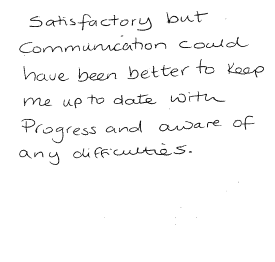 Satisfactory but
Communication could
have been better to keep
me up to date with
Progress and aware of
any difficulties.